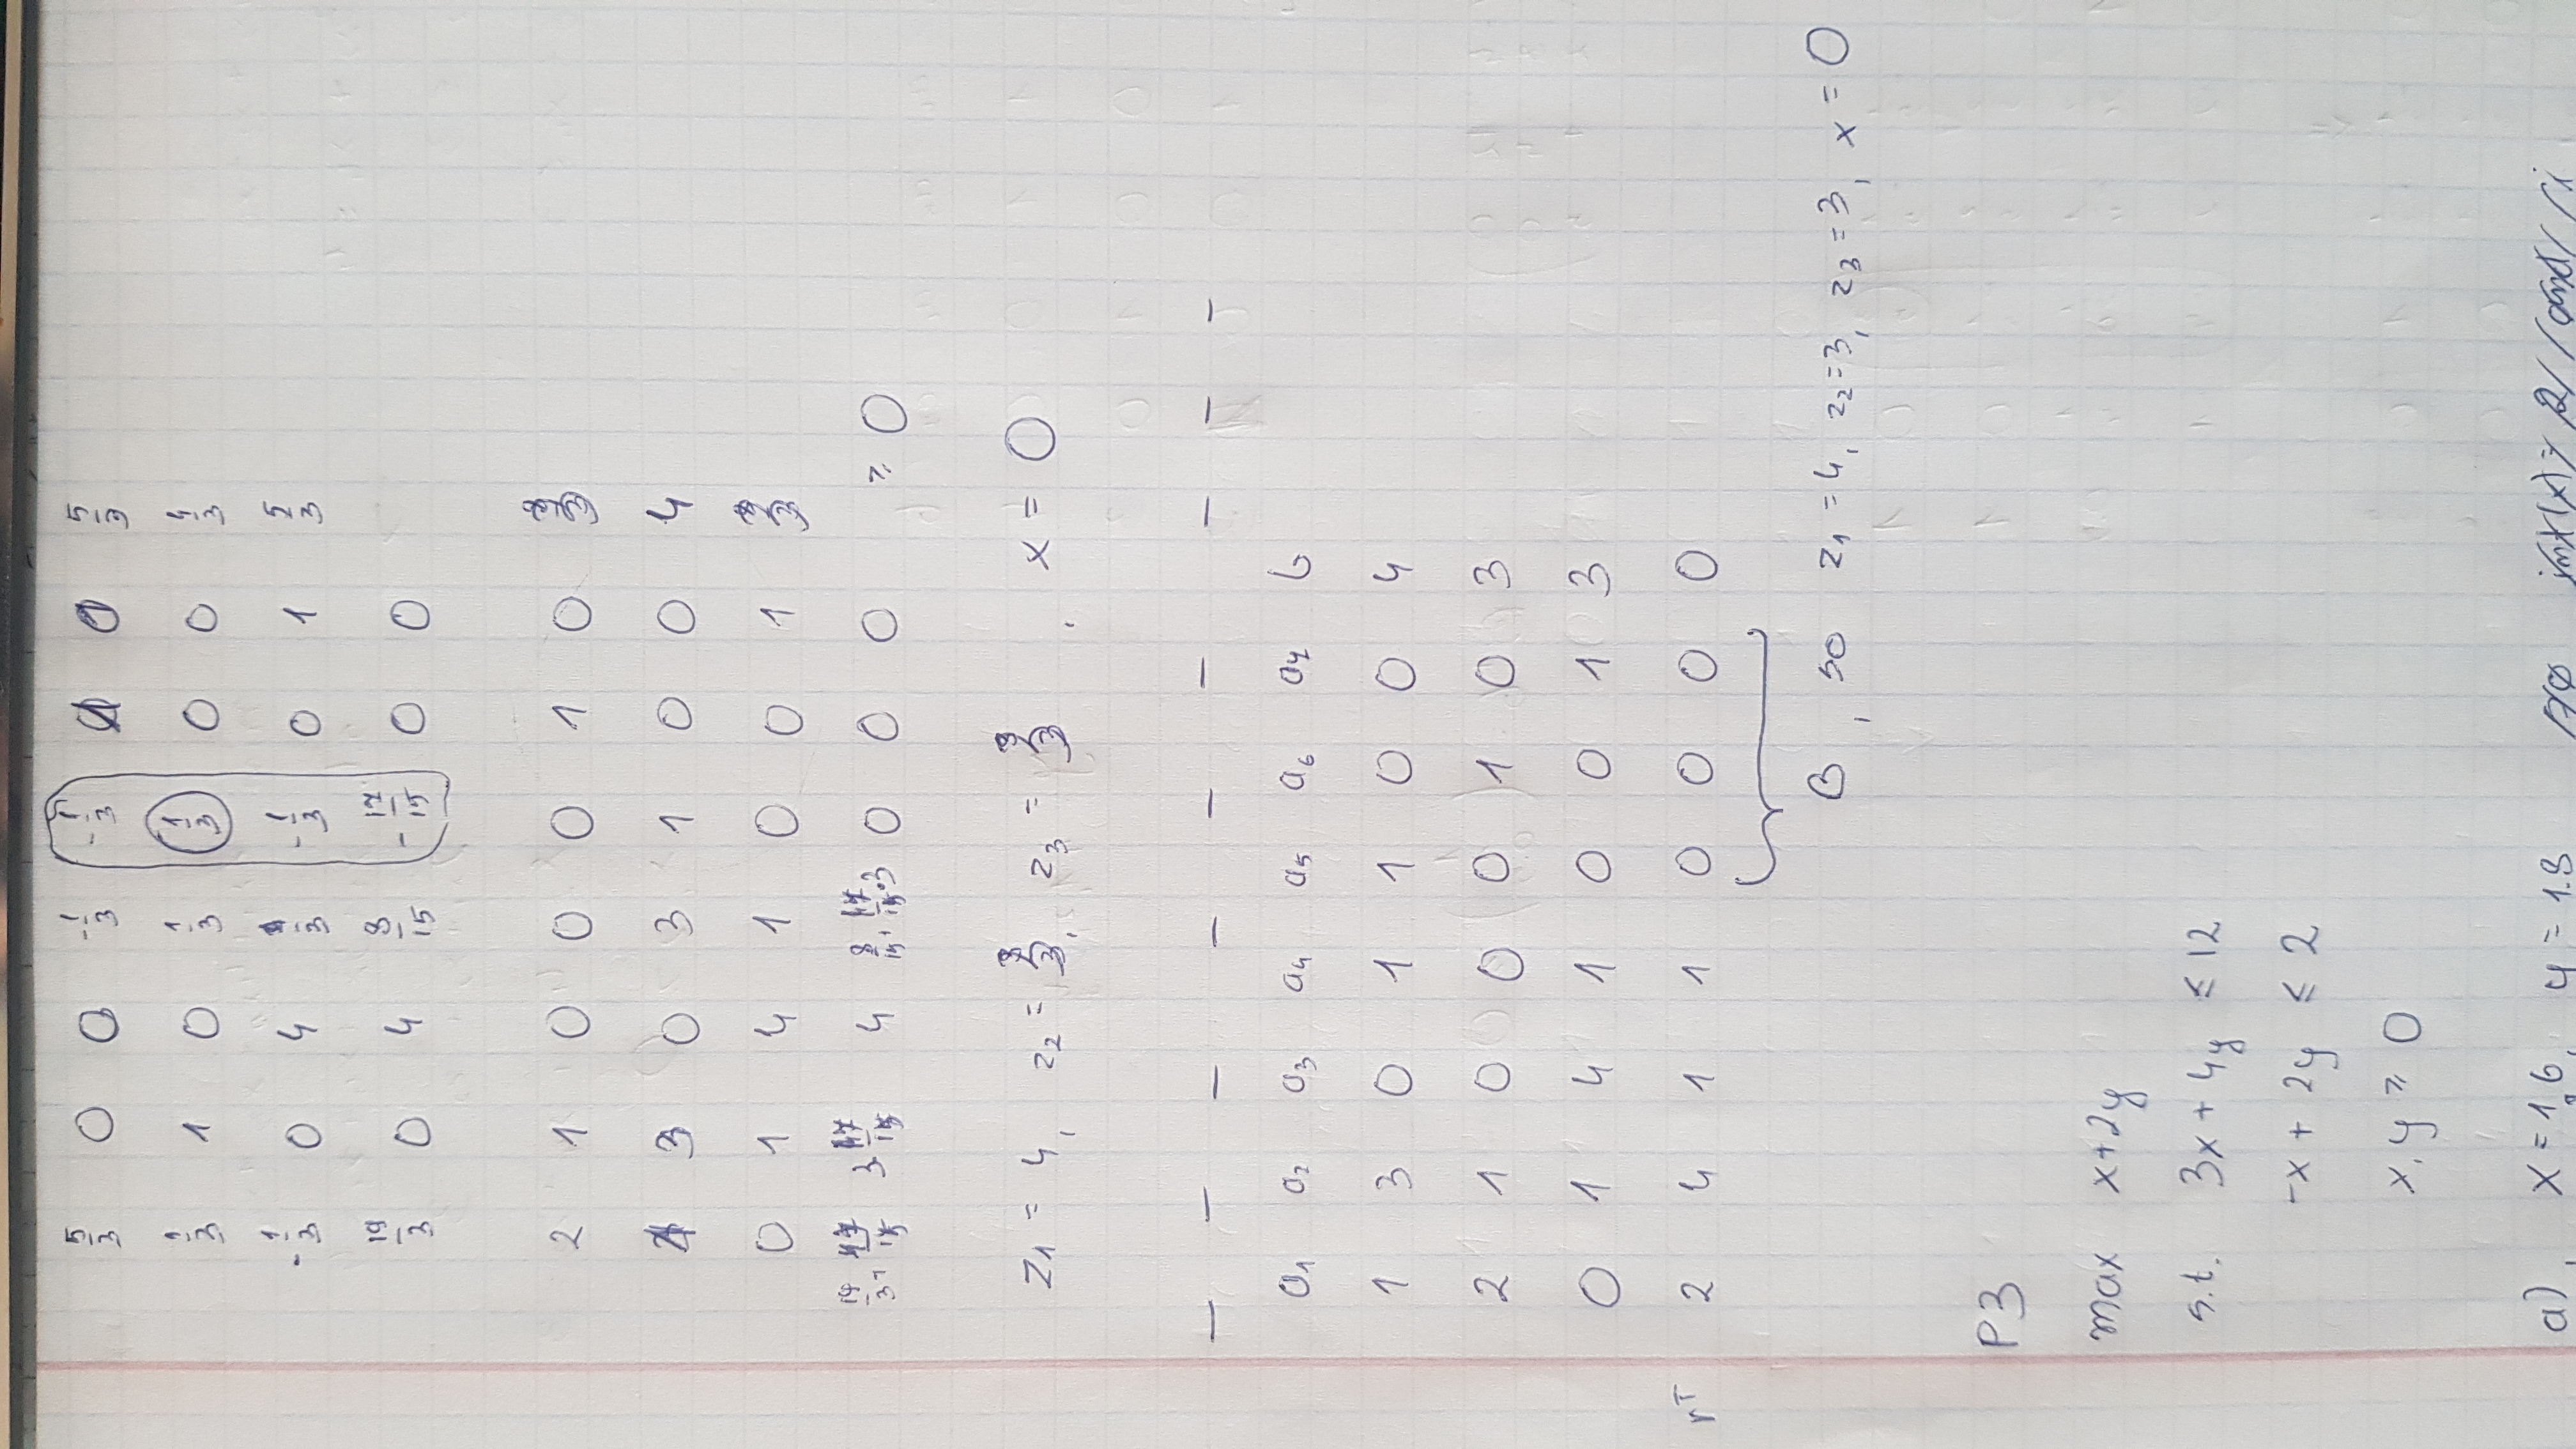 5/3 0 0 -1/3 -1/3 1 0 5/3
1/3 1 0 1/3 1/3 0 0 4/3
-1/3 0 4 /3 -1/3 0 1 5/3
19/3 0 4 8/15 -17/15 0 0
2 1 0 0 0 1 0 3
1 3 0 3 1 0 0 4
0 1 4 1 0 0 1 3
19/3 + 17/15 3·17/15 4 8/15 + 17/15·3 0 0 0 ≥ 0
z1 = 4, z2 = 3, z3 = 3, x = 0
— — — — — — — — —
a1 a2 a3 a4 a5 a6 a7 b
1 3 0 1 1 0 0 4
2 1 0 0 0 1 0 3
0 1 4 1 0 0 1 3
rT 2 4 1 1 0 0 0 0
B, so z1 = 4, z2 = 3, z3 = 3, x = 0
P3
max x + 2y
s.t. 3x + 4y ≤ 12
-x + 2y ≤ 2
x, y ≥ 0
a), x = 1.6, y = 1.8